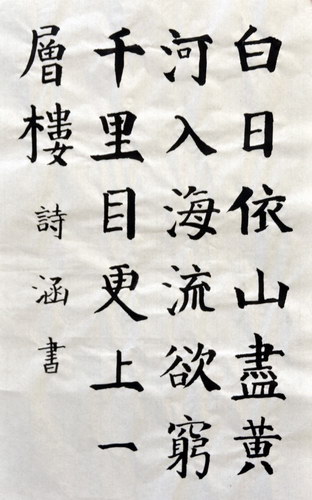 白日依山盡黄
河入海流欲窮
千里目更上一
層樓
詩涵書